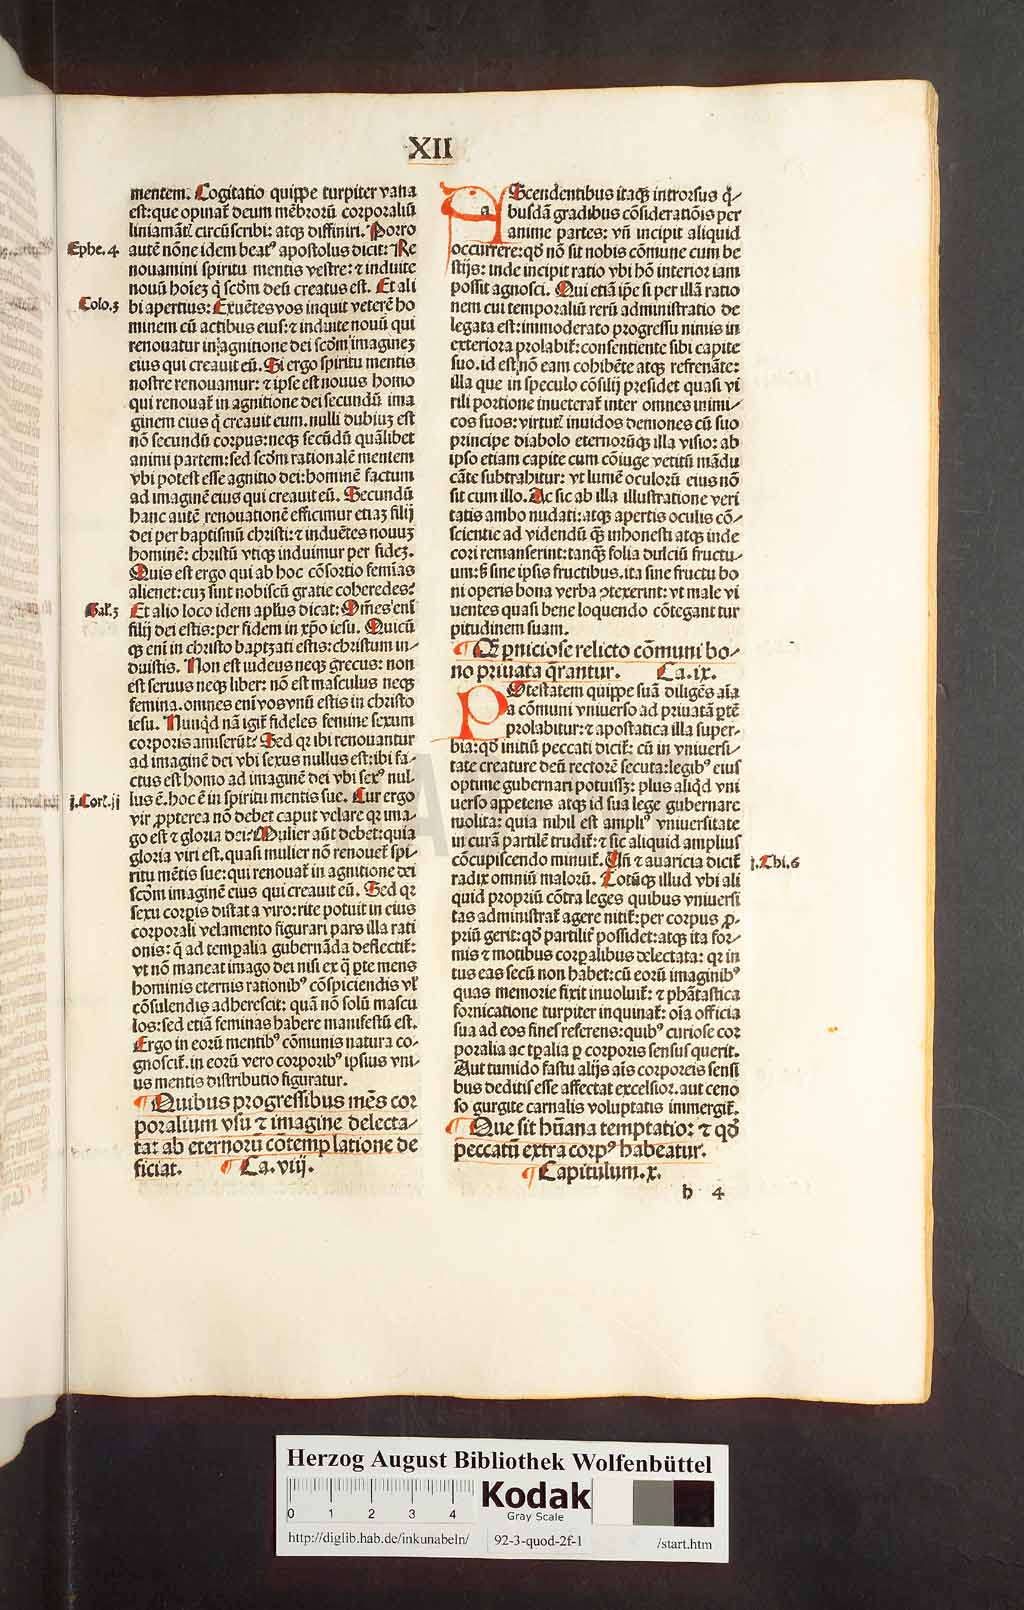 XII
mentem. Cogitatio quippe turpiter vana
est: que opinat᷑ deum mēbroꝝ corporaliū
liniamāt᷑ circūscribi: atqꝫ diffiniri. Porro
Ephe. 4
autē nōne idem beat⁹ apostolus dicit: Re
nouamini spiritu mentis vestre: ⁊ induite
nouū hoīeꝫ q̇ scōm deū creatus est. Et ali
Colo.3
bi apertius: Exuētes vos inquit veterē ho
minem cū actibus eius: ⁊ induite nouū qui
renouatur in agnitione dei scōm imagineꝫ
eius qui creauit eū. Si ergo spiritu mentis
nostre renouamur: ⁊ ipse est nouus homo
qui renouat᷑ in agnitione dei secundū ima
ginem eius q̇ creauit eum. nulli dubiuꝫ est
nō secundū corpus: neqꝫ secūdū quālibet
animi partem: sed scōm rationalē mentem
vbi potest esse agnitio dei: hominē factum
ad imaginē eius qui creauit eū. Secundū
hanc autē renouationē efficimur etiaꝫ filij
dei per baptismū christi: ⁊ induētes nouuꝫ
hominē: christū vtiqꝫ induimur per fideꝫ.
Quis est ergo qui ab hoc cōsortio feminas
alienet: cuꝫ sint nobiscū gratie coheredes:
Gal᷑.3
Et alio loco idem apl̄us dicat: Om̄es enī
filij dei estis: per fidem in xp̄o iesu. Quicū
qꝫ enī in christo baptꝫati estis: christum in⸗
duistis. Non est iudeus neqꝫ grecus: non
est seruus neqꝫ liber: nō est masculus neqꝫ
femina. omnes enī vos vnū estis in christo
iesu. Nunqd nā igit᷑ fideles femine sexum
corporis amiserūt: Sed qꝛ ibi renouantur
ad imaginē dei vbi sexus nullus est: ibi fa⸗
ctus est homo ad imaginē dei vbi sex⁹ nul⸗
j.Cort᷑.jj
lus ē. hoc ē in spiritu mentis sue. Cur ergo
vir ꝓpterea nō debet caput velare qꝛ ima⸗
go est ⁊ gloria dei: Mulier aūt debet: quia
gloria viri est. quasi mulier nō renouet᷑ spi⸗
ritu mētis sue: qui renouat᷑ in agnitione dei
scōm imaginē eius qui creauit eū. Sed qꝛ
sexu corpis distat a viro: rite potuit in eius
corporali velamento figurari pars illa rati
onis: q̄ ad tempalia gubernāda deflectit᷑:
vt nō maneat imago dei nisi ex q̄ ꝑte mens
hominis eternis rationib⁹ cōspiciendis vl᷑
cōsulendis adherescit: quā nō solū mascu
los: sed etiā feminas habere manifestū est.
Ergo in eorū mentib⁹ cōmunis natura co⸗
gnoscit᷑. in eorū vero corporib⁹ ipsius vni⸗
us mentis distributio figuratur.
¶ Quibus progressibus mēs cor
poralium vsu ⁊ imagine delecta⸗
ta: ab eternorū cōtemplatione de
ficiat. ¶ Ca. viij.
a
AScendentibus itaqꝫ introrsus q̇⸗
busdā gradibus cōsideratiōis per
anime partes: vn̄ incipit aliquid
occurrere: qd̄ nō sit nobis cōmune cum be
stijs: inde incipit ratio vbi hō interior iam
possit agnosci. Qui etiā ip̄e si per illā ratio
nem cui temporaliū rerū administratio de
legata est: immoderato progressu nimis in
exteriora prolabit᷑: consentiente sibi capite
suo. id est nō eam cohibēte atqꝫ refrenāte:
illa que in speculo cōsilij presidet quasi vi
rili portione inueterat᷑ inter omnes inimi⸗
cos suos: virtut᷑ inuidos demones cū suo
principe diabolo eternorūqꝫ illa visio: ab
ipso etiam capite cum cōiuge vetitū māđu
cāte subtrahitur: vt lumē oculorū eius nō
sit cum illo. Ac sic ab illa illustratione veri
tatis ambo nudati: atqꝫ apertis oculis cō⸗
scientie ad videndū qꝫ inhonesti atqꝫ inde
cori remanserint: tanqꝫ folia dulciū fructu⸗
um: sꝫ sine ipsis fructibus. ita sine fructu bo
ni operis bona verba ꝯtexerint: vt male vi
uentes quasi bene loquendo cōtegant tur
pitudinem suam.
¶ Qꝫ ꝑniciose relicto cōmuni bo⸗
no priuata q̄rantur. Ca. ix.
POtestatem quippe suā diligēs aīa
a cōmuni vniuerso ad priuatā ꝑtē
prolabitur: ⁊ apostatica illa super⸗
bia: qd̄ initiū peccati dicit᷑: cū in vniuersi⸗
tate creature deū rectorē secuta: legib⁹ eius
optime gubernari potuissꝫ: plus aliqd vni
uerso appetens atqꝫ id sua lege gubernare
molita: quia nihil est ampli⁹ vniuersitate
in curā partilē trudit᷑: ⁊ sic aliquid amplius
j.Thi.6
cōcupiscendo minuit᷑. Un̄ ⁊ auaricia dicit᷑
radix omniū malorū. Totūqꝫ illud vbi ali
quid propriū cōtra leges quibus vniuersi
tas administrat᷑ agere nitit᷑: per corpus ꝓ⸗
priū gerit: qd̄ partilit᷑ possidet: atqꝫ ita for⸗
mis ⁊ motibus corpalibus delectata: qꝛ in
tus eas secū non habet: cū eorū imaginib⁹
quas memorie fixit inuoluit᷑: ⁊ phātastica
fornicatione turpiter inquinat᷑: oīa officia
sua ad eos fines referens: quib⁹ curiose cor
poralia ac tꝑalia ꝑ corporis sensus querit.
Aut tumido fastu alijs aīs corporeis sensi
bus deditis esse affectat excelsior. aut ceno
so gurgite carnalis voluptatis immergit᷑.
¶ Que sit hūana temptatio: ⁊ qd̄
peccatū extra corp⁹ habeatur.
¶ Capitulum. x.
b 4
HAB
Herzog August Bibliothek Wolfenbüttel
0 1 2 3 4
Kodak
Gray Scale
http://diglib.hab.de/inkunabeln/ 92-3-quod-2f-1 /start.htm